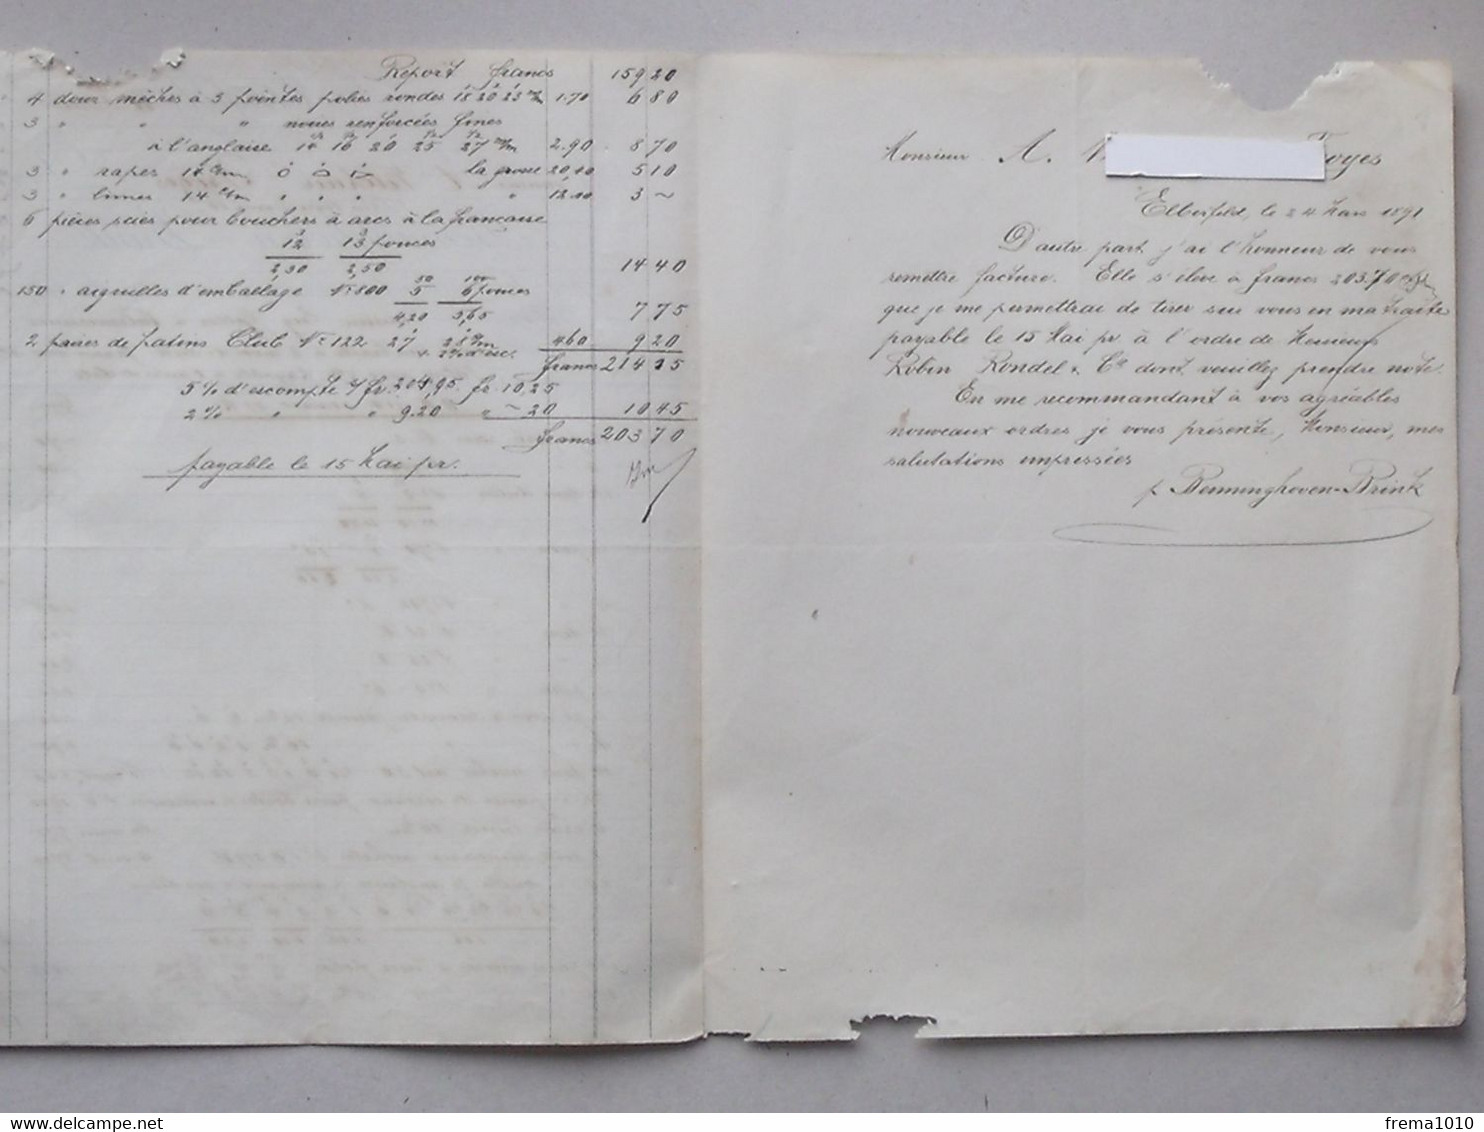 Report francs 15920
4 douz mèches à 3 pointes polies rondes 18 20 23 m/m 1.70 680
3 " " " noires renforcées fines
à l'anglaise 14 16 20 25 27 m/m 2.90 870
3 " rapes 14 c/m la grosse 20,40 510
3 " limes 14 c/m " " " " 12.10 3 ~
6 pièces scies pour bouchers à arcs à la française
12 13 pouces
2,30 2,50 1440
150 " aiguilles d'emballage No 800 5 6 pouces
4,20 3,65 775
2 paires de patins Club No 122 27 28 c/m 460 920
+ 2% d'esc. francs 21415
5% d'escompte s/ fr. 204,95 fr. 10,25
2% " " 9.20 " ~ 20 1045
francs 20370
payable le 15 Mai pr.
Monsieur A. Troyes
Elberfeld, le 24 Mars 1891
D'autre part j'ai l'honneur de vous
remettre facture. Elle s'élève à francs 203.70
que je me permettrai de tirer sur vous en ma traite
payable le 15 Mai pr à l'ordre de Messieurs
Robin Rondel & Cie dont veuillez prendre note.
En me recommandant à vos agréables
nouveaux ordres je vous présente, Monsieur, mes
salutations empressées
p. Benninghoven-Brink
delcampe.net
frema1010